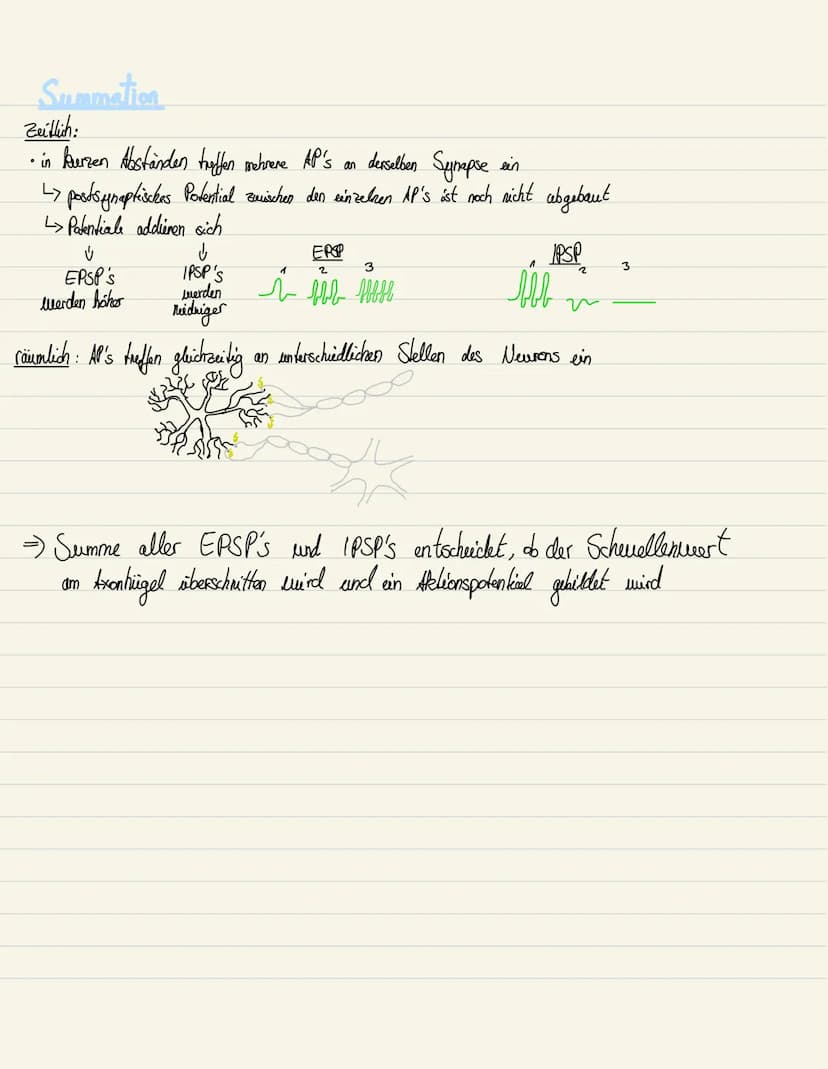 Summation
Zeitlich:
• in kurzen Abständen treffen mehrere AP's an derselben Synapse ein
↳ postsynaptisches Potential zwischen den einzelnen AP's ist noch nicht abgebaut
↳ Potentiale addieren sich
↓ ↓ EPSP IPSP
EPSP's IPSP's 1 2 3 1 2 3
werden höher werden
niedriger
räumlich: AP's treffen gleichzeitig an unterschiedlichen Stellen des Neurons ein
⇒ Summe aller EPSP's und IPSP's entscheidet, ob der Schwellenwert
am Axonhügel überschritten wird und ein Aktionspotential gebildet wird